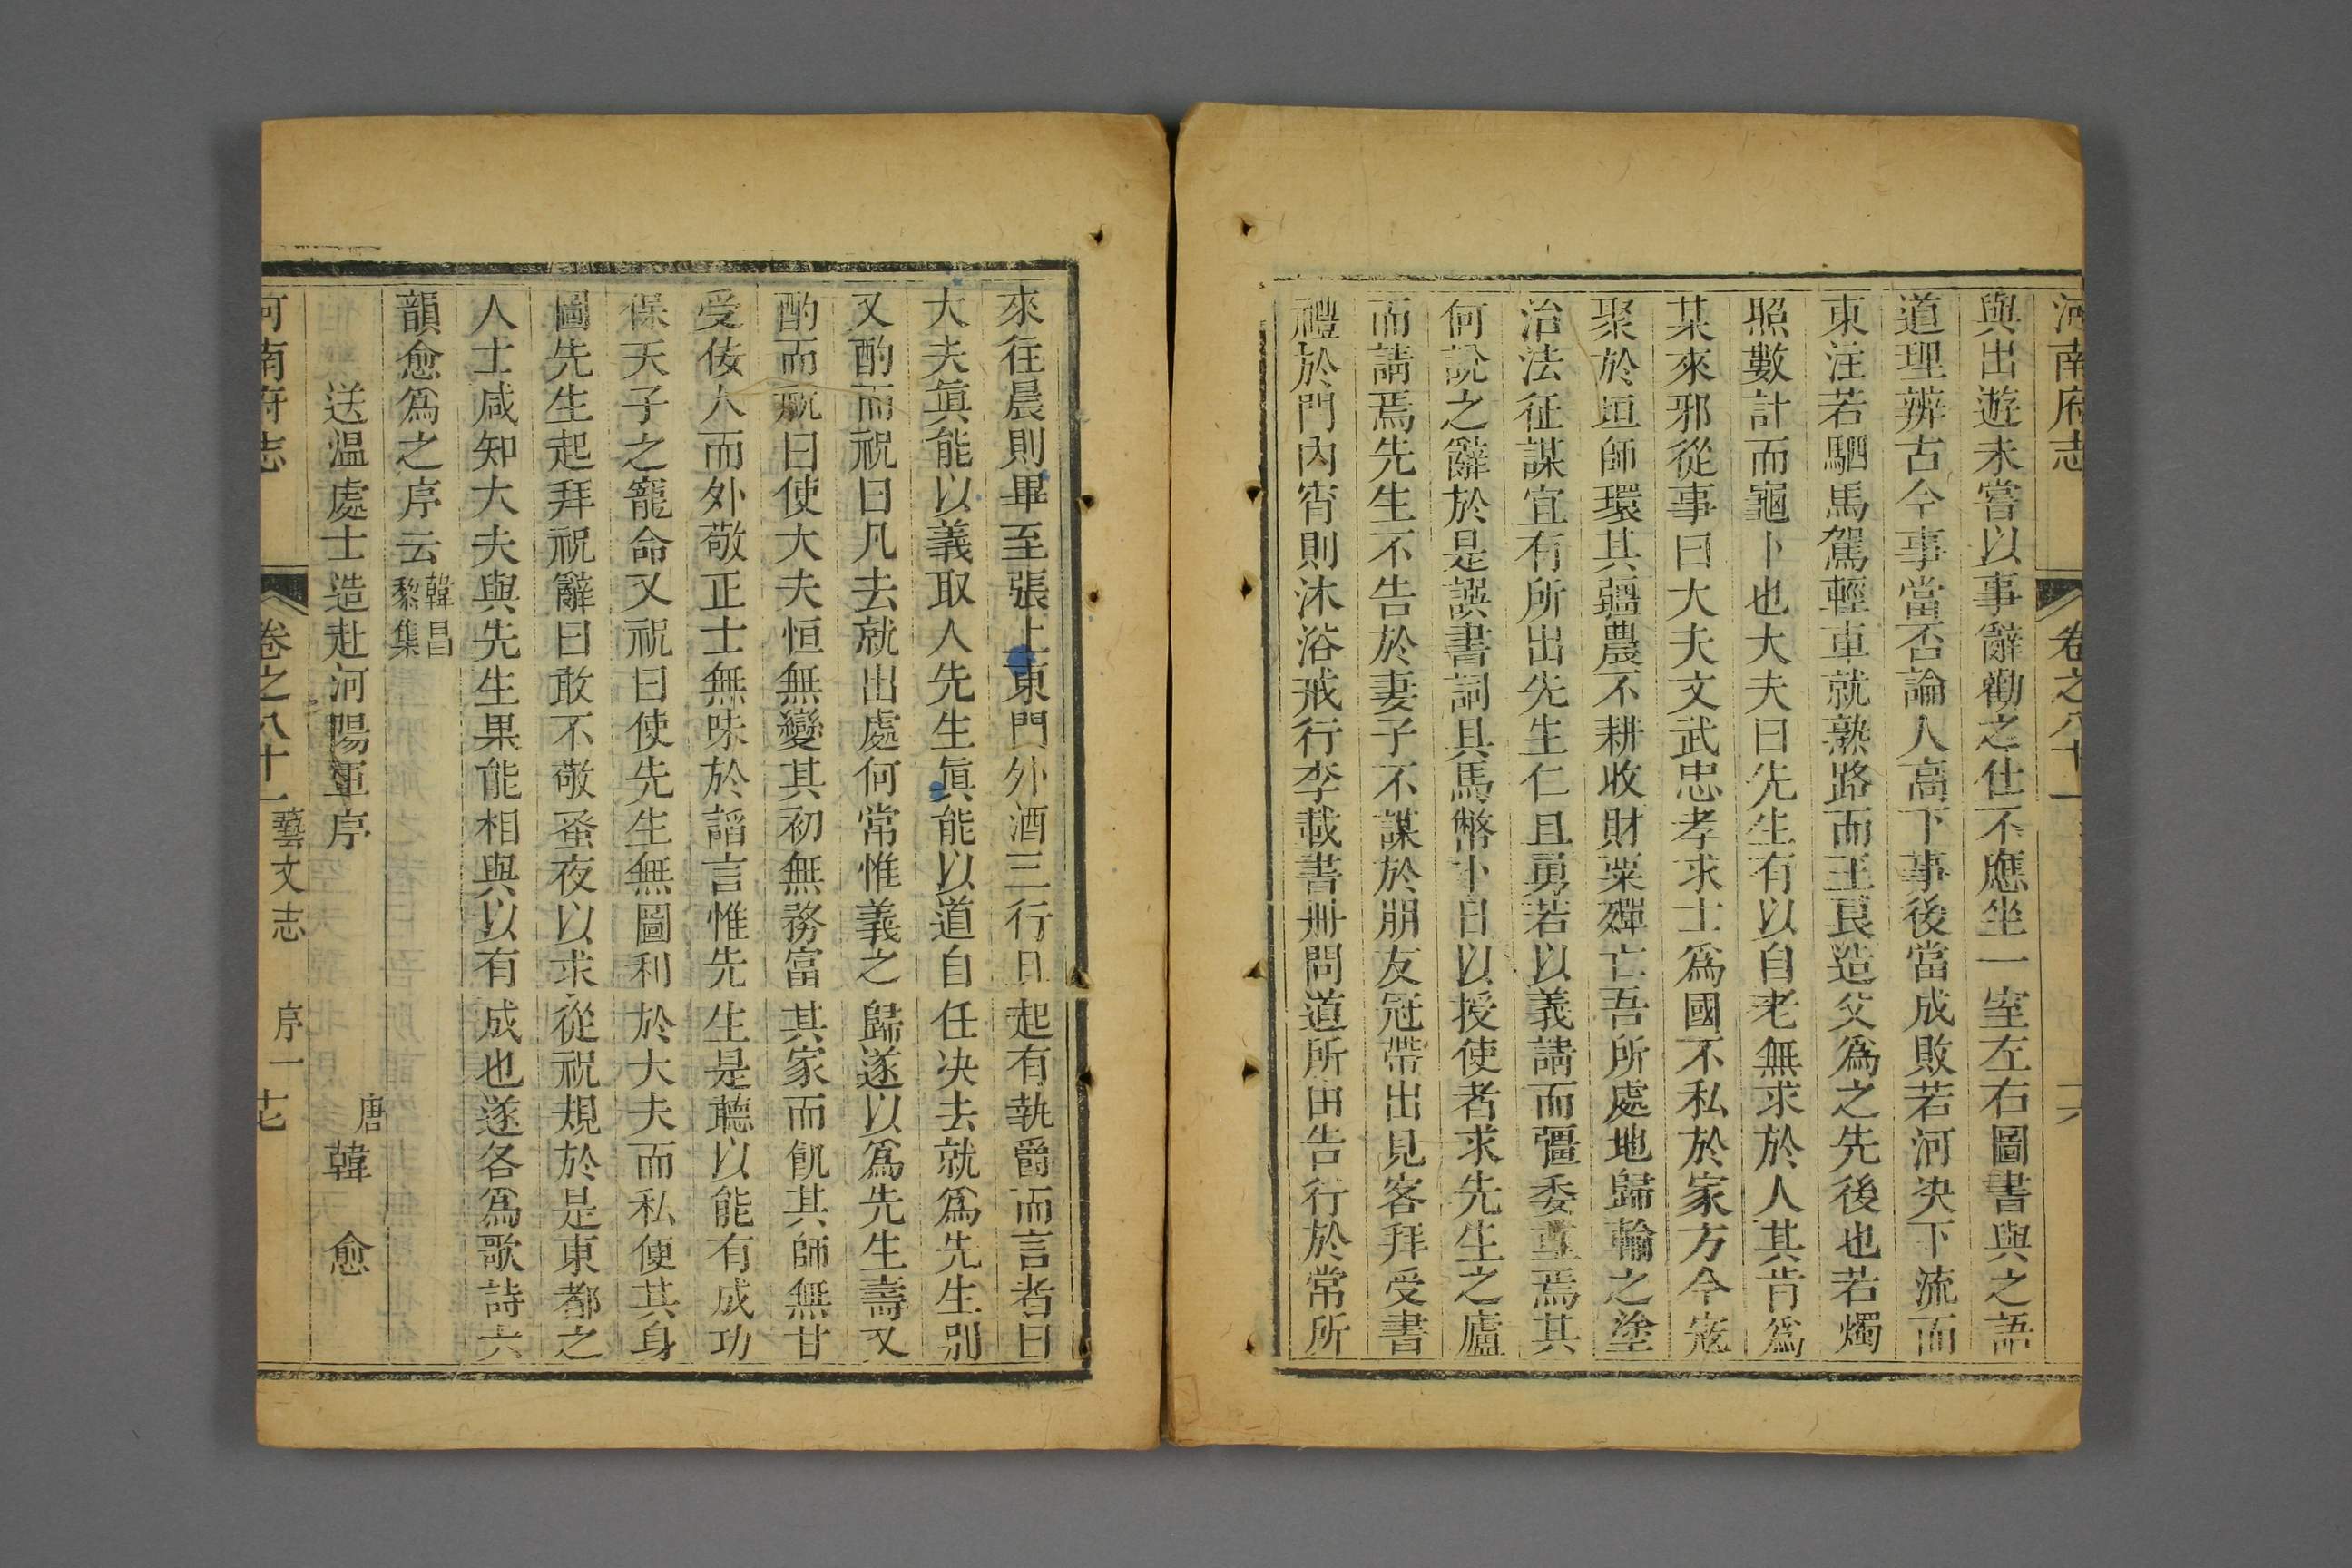 河南府志 卷之八十一 十六
與出遊未嘗以事辭勸之仕不應坐一室左右圖書與之語
道理辨古今事當否論人高下事後當成敗若河決下流而
東注若駟馬駕輕車就熟路而王良造父爲之先後也若燭
照數計而龜卜也大夫曰先生有以自老無求於人其肯爲
某來邪從事曰大夫文武忠孝求士爲國不私於家方今寇
聚於垣師環其疆農不耕收財粟殫亡吾所處地歸輸之塗
治法征謀宜有所出先生仁且勇若以義請而彊委重焉其
何說之辭於是譔書詞具馬幣卜日以授使者求先生之廬
而請焉先生不告於妻子不謀於朋友冠帶出見客拜受書
禮於門內宵則沐浴戒行李載書冊問道所由告行於常所
來往晨則畢至張上東門外酒三行且起有執爵而言者曰
大夫眞能以義取人先生眞能以道自任决去就爲先生別
又酌而祝曰凡去就出處何常惟義之歸遂以爲先生壽又
酌而祝曰使大夫恒無變其初無務富其家而飢其師無甘
受佞人而外敬正士無味於謟言惟先生是聽以能有成功
保天子之寵命又祝曰使先生無圖利於大夫而私便其身
圖先生起拜祝辭曰敢不敬蚤夜以求從祝規於是東都之
人士咸知大夫與先生果能相與以有成也遂各爲歌詩六
韻愈爲之序云 韓昌黎集
送温處士造赴河陽軍序 唐韓愈
河南府志 卷之八十一 藝文志 序一 十七